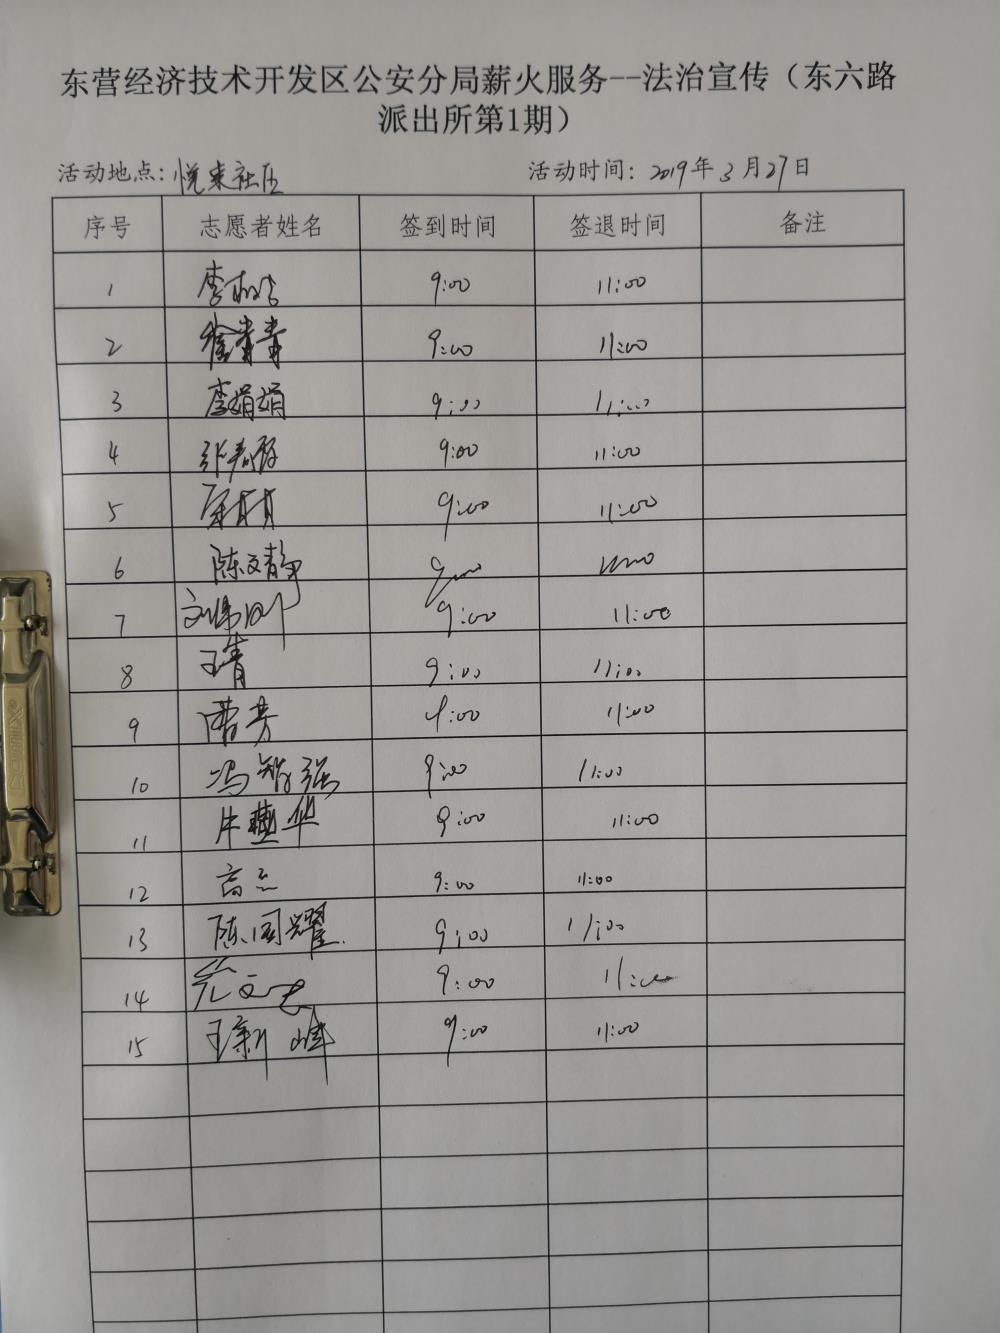 东营经济技术开发区公安分局薪火服务--法治宣传（东六路
派出所第1期）
活动地点：悦来社区 活动时间：2019年3月27日
序号 志愿者姓名 签到时间 签退时间 备注
1 李 9:00 11:00
2 徐青青 9:00 11:00
3 李娟娟 9:00 11:00
4 张 9:00 11:00
5 9:00 11:00
6 陈文静 9:00 11:00
7 刘 9:00 11:00
8 王青 9:00 11:00
9 曹芳 9:00 11:00
10 冯智强 9:00 11:00
11 华 9:00 11:00
12 高 9:00 11:00
13 陈国耀 9:00 11:00
14 文 9:00 11:00
15 王新峰 9:00 11:00